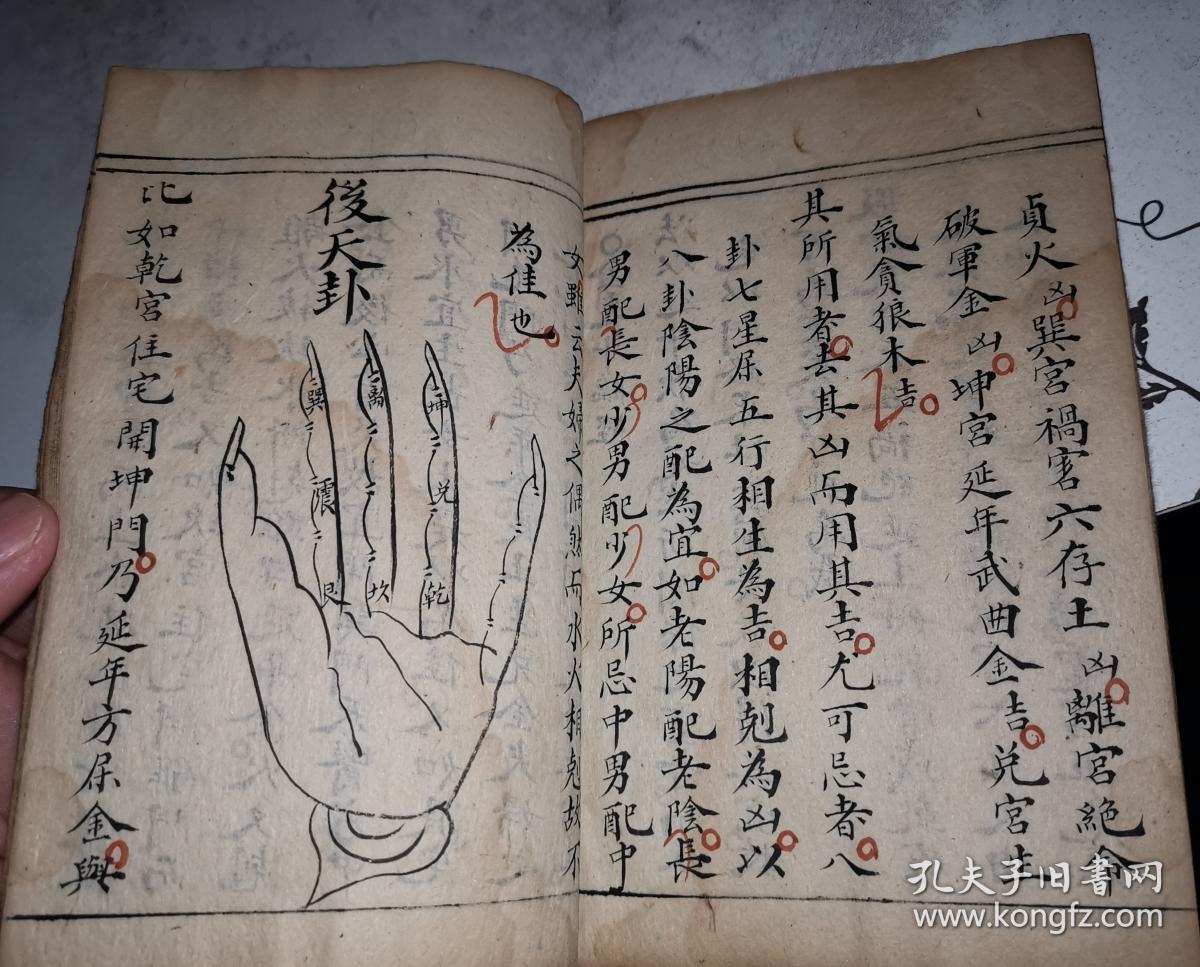 貞火凶巽宮禍害六存土凶離宮絶命
破軍金凶坤宮延年武曲金吉兌宮生
氣貪狼木吉
其所用者去其凶而用其吉尤可忌者八
卦七星屬五行相生為吉相剋為凶以
八卦陰陽之配為宜如老陽配老陰長
男配長女少男配少女所忌中男配中
女雖云夫婦之偶然而水火相剋故不
為佳也
後天卦
坤
兌
乾
離
坎
巽
震
艮
比如乾宮住宅開坤門乃延年方屬金與
孔夫子旧书网
www.kongfz.com